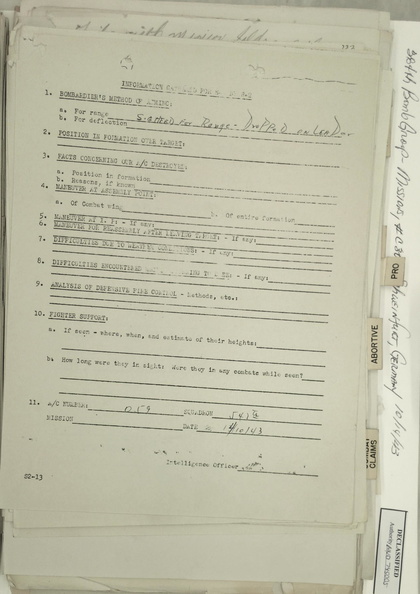 193
1. BOMBARDIER'S METHOD OF AIMING:
a. For range Sighted for Range - Dropped on leader
b. For deflection
2. POSITION IN FORMATION OVER TARGET:
3. FACTS CONCERNING OUR A/C DESTROYED:
a. Position in formation
b. Reasons, if known
4. MANEUVER AT ASSEMBLY POINT:
a. Of Combat wing b. Of entire formation
5. MANEUVER AT I. P: - If any:
6. MANEUVER FOR IMMEDIATELY AFTER LEAVING TARGET: - If any:
7. DIFFICULTIES DUE TO WEATHER CONDITIONS: - If any:
8. DIFFICULTIES ENCOUNTERED - If any:
9. ANALYSIS OF DEFENSIVE FIRE CONTROL - Methods, etc.:
10. FIGHTER SUPPORT:
a. If seen - where, when, and estimate of their heights:
b. How long were they in sight: Were they in any combats while seen?
11. A/C NUMBER: 059 SQUADRON
MISSION DATE 14/10/43
Intelligence Officer
S2-13
384th Bomb Group - Mission, Germany 10/14/43
PRO
ABORTIVE
COMBAT CLAIMS
DECLASSIFIED